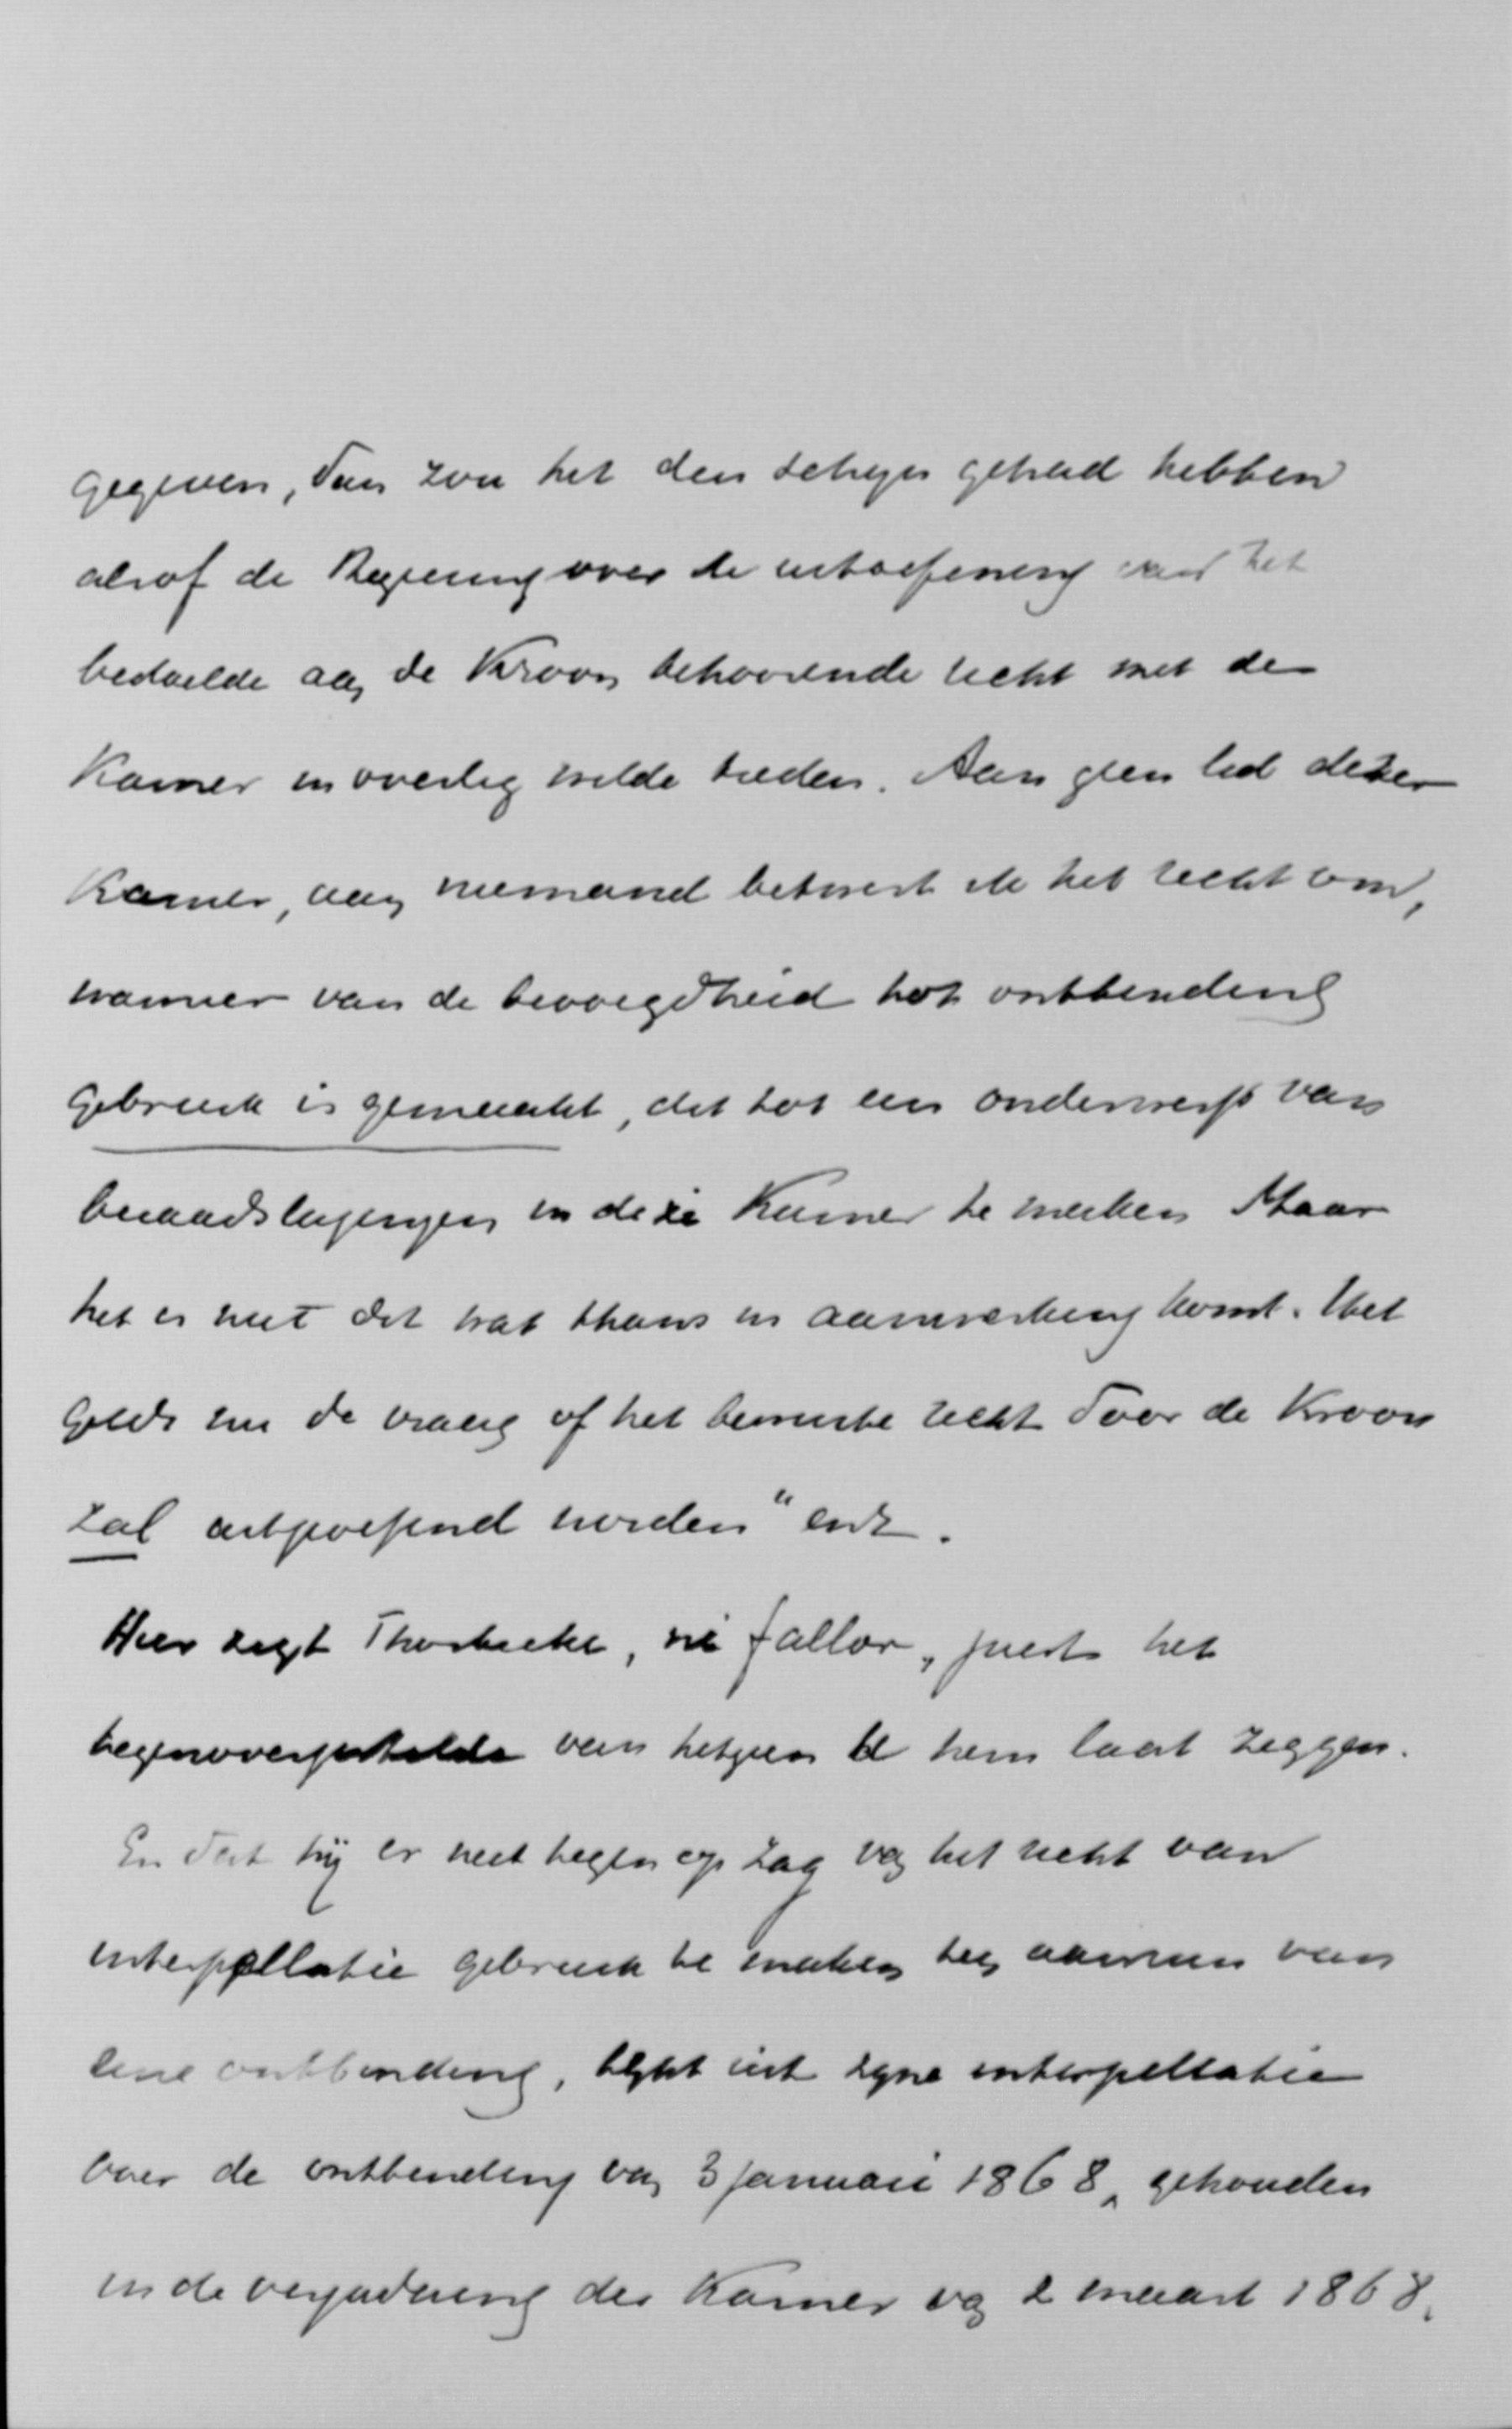 gegeven, dan zou het den schijn gehad hebben
alsof de Regeering over de uitoefening van het
bedoelde aan de Kroon behoorende recht met de
Kamer in overleg wilde treden. Aan geen lid dezer
Kamer, aan niemand betwist ik het recht om,
wanneer van de bevoegdheid tot ontbinding
gebruik is gemaakt, dit tot een onderwerp van
beraadslagingen in deze Kamer te maken Maar
het is niet dit wat thans in aanmerking komt. Het
geldt nu de vraag of het bewuste recht door de Kroon
zal uitgeoefend worden" enz.
Hier zegt Thorbecke, ni fallor, juist het
tegenovergestelde van hetgeen U hem laat zeggen.
En dat hij er niet tegen op zag van het recht van
interpellatie gebruik te maken ten aanzien van
eene ontbinding, blijkt uit zijne interpellatie
over de ontbinding van 3 Januari 1868, gehouden
in de vergadering der Kamer van 2 maart 1868.